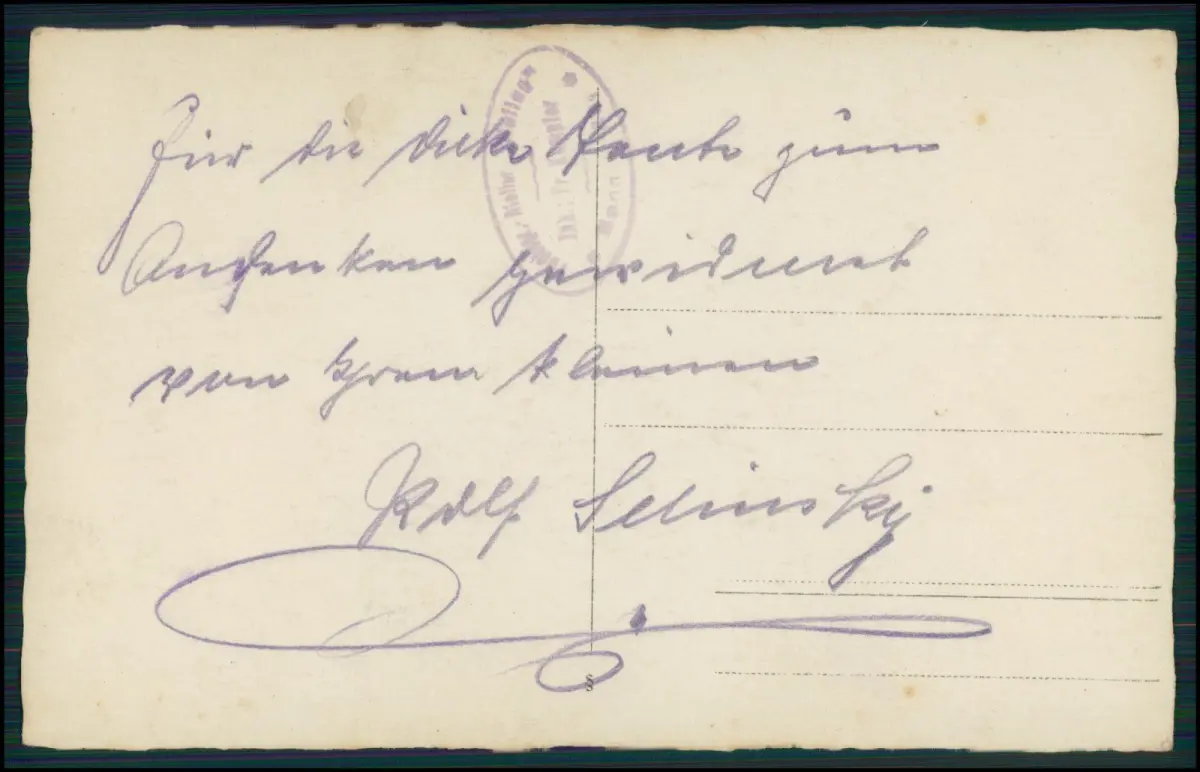 Für die dicke Tante zum
Andenken gewidmet
von Ihrem kleinen
Rolf Selinsky
Inh.:
§